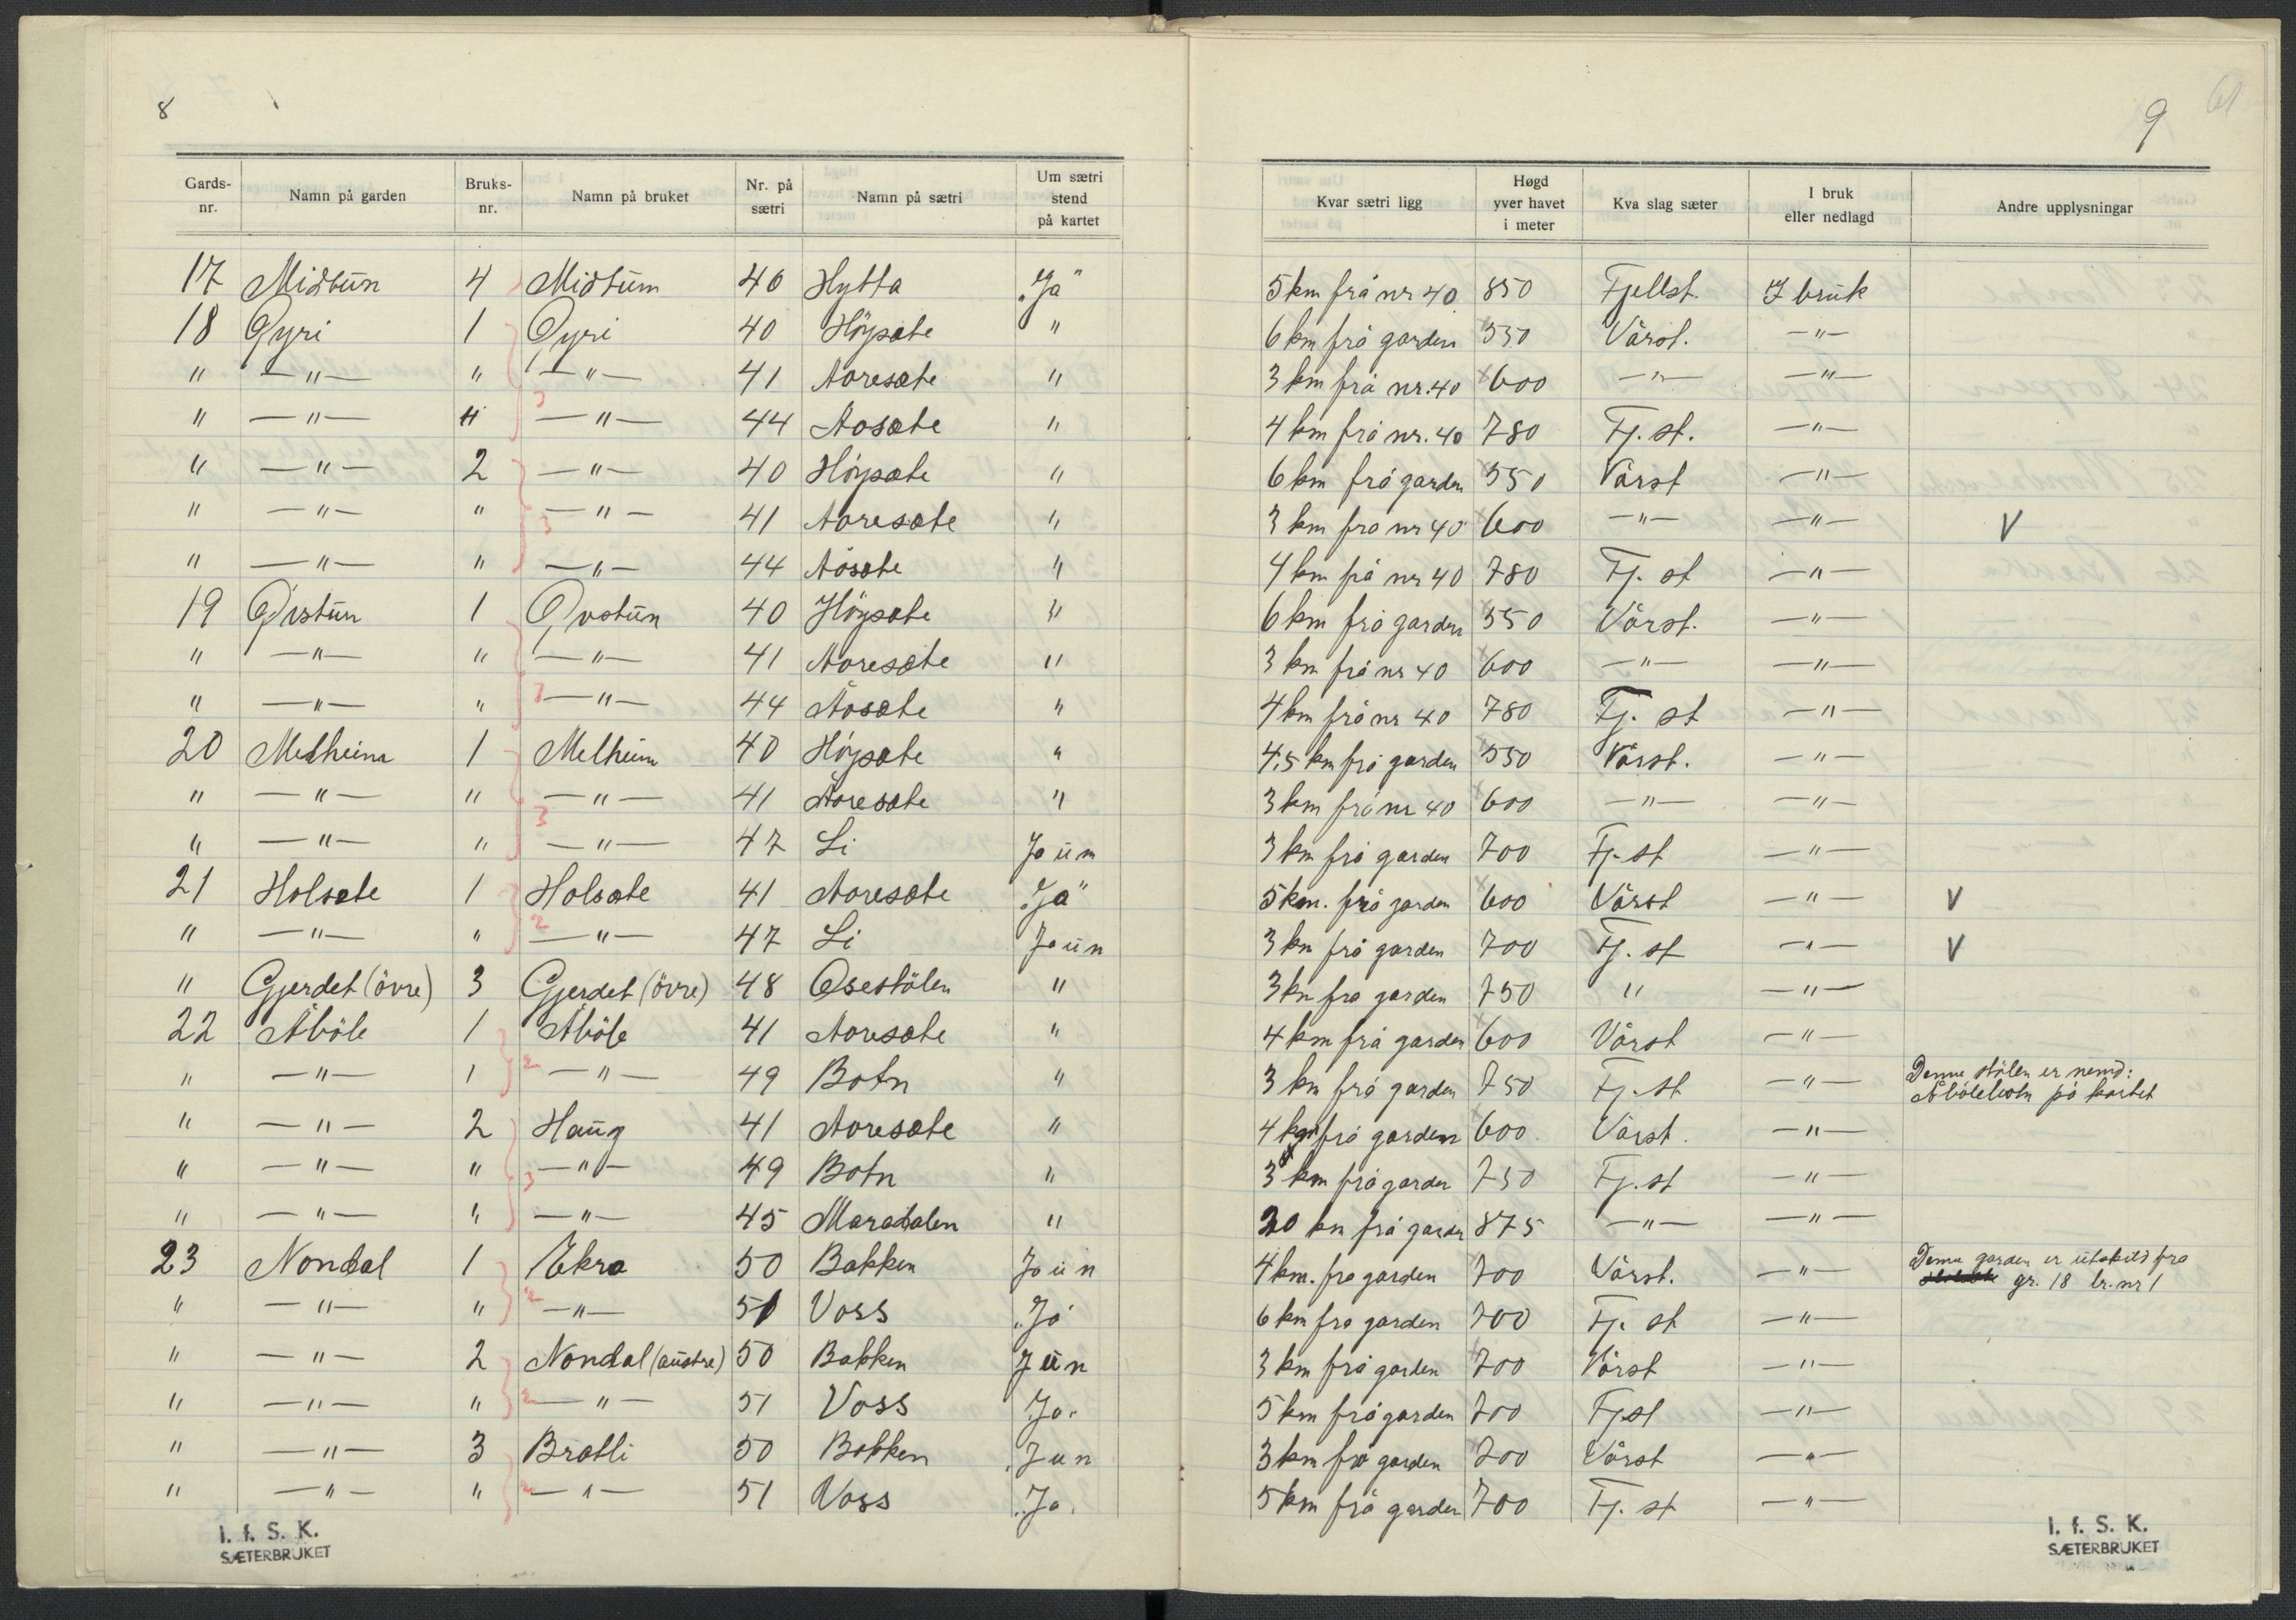 8
Gards-nr. | Namn på garden | Bruks-nr. | Namn på bruket | Nr. på sætri | Namn på sætri | Um sætri stend på kartet
17 | Midtün | 4 | Midtüm | 46 | Hytta | "Ja"
18 | Øyri | 1 | Øyri | 40 | Höysæte | "
" | —"— | " | —"— | 41 | Aaresæte | "
" | —"— | " | —"— | 44 | Aasæte | "
" | —"— | 2 | —"— | 40 | Höysæte | "
" | —"— | " | —"— | 41 | Aaresæte | "
" | —"— | " | —"— | 44 | Aasæte | "
19 | Øvstün | 1 | Øvstün | 40 | Höysæte | "
" | —"— | " | —"— | 41 | Aaresæte | "
" | —"— | " | —"— | 44 | Aasæte | "
20 | Melheim | 1 | Melheim | 40 | Höysæte | "
" | —"— | " | —"— | 41 | Aaresæte | "
" | —"— | " | —"— | 47 | Li | Jaün
21 | Holsæte | 1 | Holsæte | 41 | Aaresæte | "Ja"
" | —"— | " | —"— | 47 | Li | Jaün
" | Gjerdet (övre) | 3 | Gjerdet (övre) | 48 | Osestölen | "
22 | Åböle | 1 | Åböle | 41 | Aaresæte | "
" | —"— | 1 | —"— | 49 | Botn | "
" | —"— | 2 | Haüg | 41 | Aaresæte | "
" | —"— | " | —"— | 49 | Botn | "
" | —"— | " | —"— | 45 | Maradalen | "
23 | Nondal | 1 | Ekra | 50 | Bakken | Jaün
" | —"— | " | —"— | 51 | Voss | "Ja
" | —"— | 2 | Nondal (aüstre) | 50 | Bakken | Jün
" | —"— | " | —"— | 51 | Voss | "Ja"
" | —"— | 3 | Bratli | 50 | Bakken | Jun
" | —"— | " | —"— | 51 | Voss | "Ja.
I. f. S. K.
SÆTERBRUKET
9
Kvar sætri ligg | Høgd yver havet i meter | Kva slag sæter | I bruk eller nedlagd | Andre upplysningar
5 km frå nr 40 | 850 | Fjellst. | I brük
6 km frå garden | 550 | Vårst. | —"—
3 km frå nr. 40 | 600 | —"— | —"—
4 km frå nr. 40 | 780 | Fj. st. | —"—
6 km frå garden | 550 | Vårst | —"—
3 km frå nr 40 | 600 | —"— | —"— | V
4 km frå nr 40 | 780 | Fj. st | —"—
6 km frå garden | 550 | Vårst. | —"—
3 km frå nr 40 | 600 | —"— | —"—
4 km frå nr 40 | 780 | Fj. st | —"—
4,5 km frå garden | 550 | Vårst. | —"—
3 km frå nr 40 | 600 | —"— | —"—
3 km frå garden | 700 | Fj. st | —"—
5 km. frå garden | 600 | Vårst | —"— | V
3 km frå garden | 700 | Fj. st | —"— | V
3 km fra garden | 750 | " | —"—
4 km frå garden | 600 | Vårst | —"—
3 km frå garden | 750 | Fj. st | —"— | Denne stölen er nemd: Åbölebotn på kartet
4 km frå garden | 600 | Vårst. | —"—
3 km frå garden | 750 | Fj. st | —"—
20 km frå garden | 875 | —"— | —"—
4 km. fra garden | 700 | Vårst. | —"— | Denne garden er ütskild fra gr. 18 br. nr 1
6 km fra garden | 700 | Fj. st | —"—
3 km frå garden | 700 | Vårst | —"—
5 km frå garden | 700 | Fj. st | —"—
3 km frå garden | 700 | Vårst | —"—
5 km frå garden | 700 | Fj. st | —"—
I. f. S. K.
SÆTERBRUKET